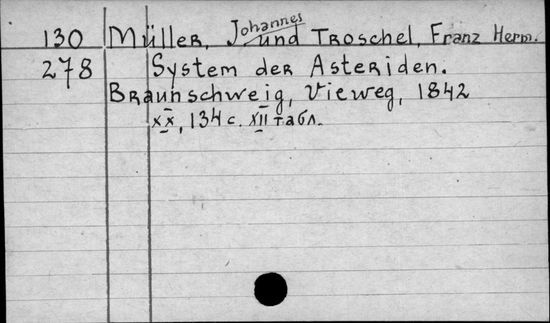 130 Müller, Johannes und Troschel, Franz Herm.
278 System der Asteriden.
Braunschweig, Vieweg, 1842
XX, 134 с. XII табл.